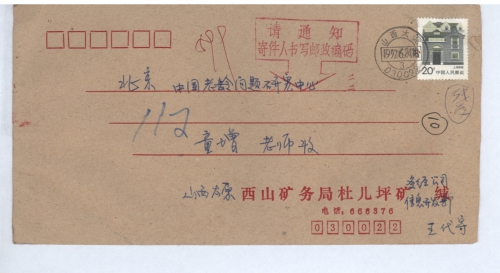 请通知
寄件人书写邮政编码
20分
中国人民邮政
北京 中国老龄问题研究中心
112
童增 老师收
10
山西太原 西山矿务局杜儿坪矿 缄
多经公司
电话:666376
030022
王代寄